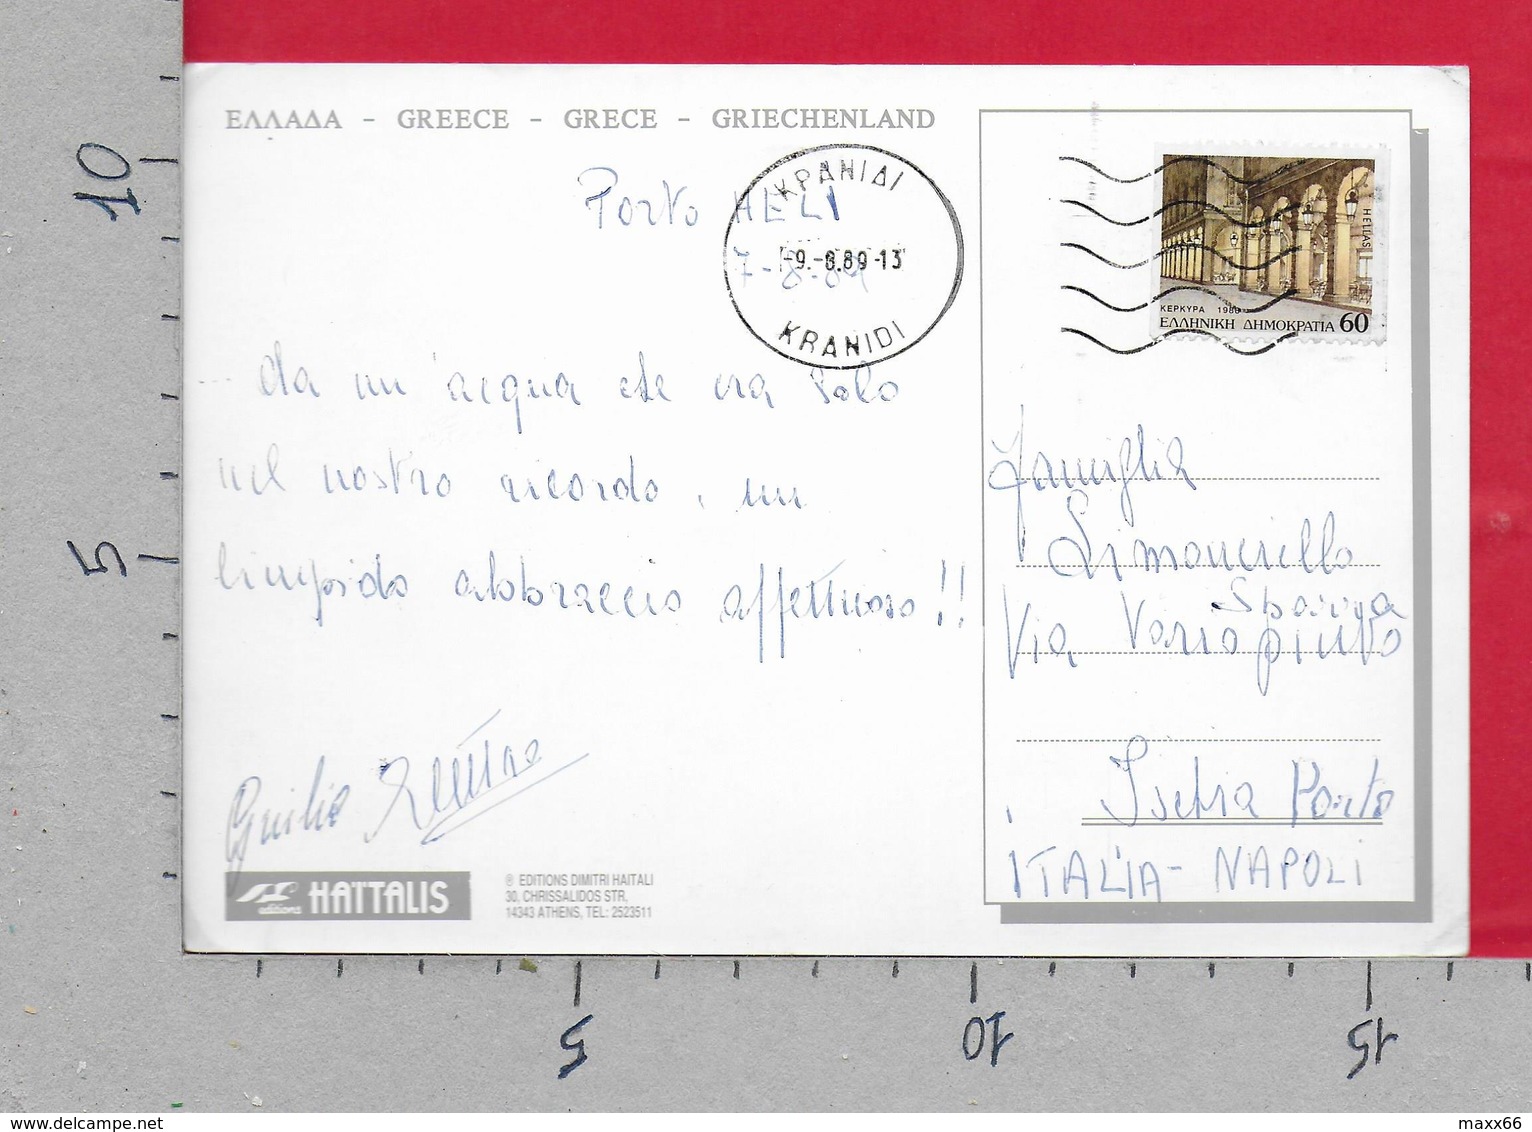 ΕΛΛΑΔΑ - GREECE - GRECE - GRIECHENLAND
Porto HELI
7-8-89
ΚΡΑΝΙΔΙ
-9.-8.89-13
KRANIDI
HELLAS
ΚΕΡΚΥΡΑ 1988
ΕΛΛΗΝΙΚΗ ΔΗΜΟΚΡΑΤΙΑ 60
da un'acqua che era solo
nel nostro ricordo, un
limpido abbraccio affettuoso!!
Giulia
Famiglia
Limoncello
Via
Ischia Porto
ITALIA - NAPOLI
editions HAÏTALIS
© EDITIONS DIMITRI HAITALI
30, CHRISSALIDOS STR,
14343 ATHENS, TEL: 2523511
10
5
5
10
15
maxx66